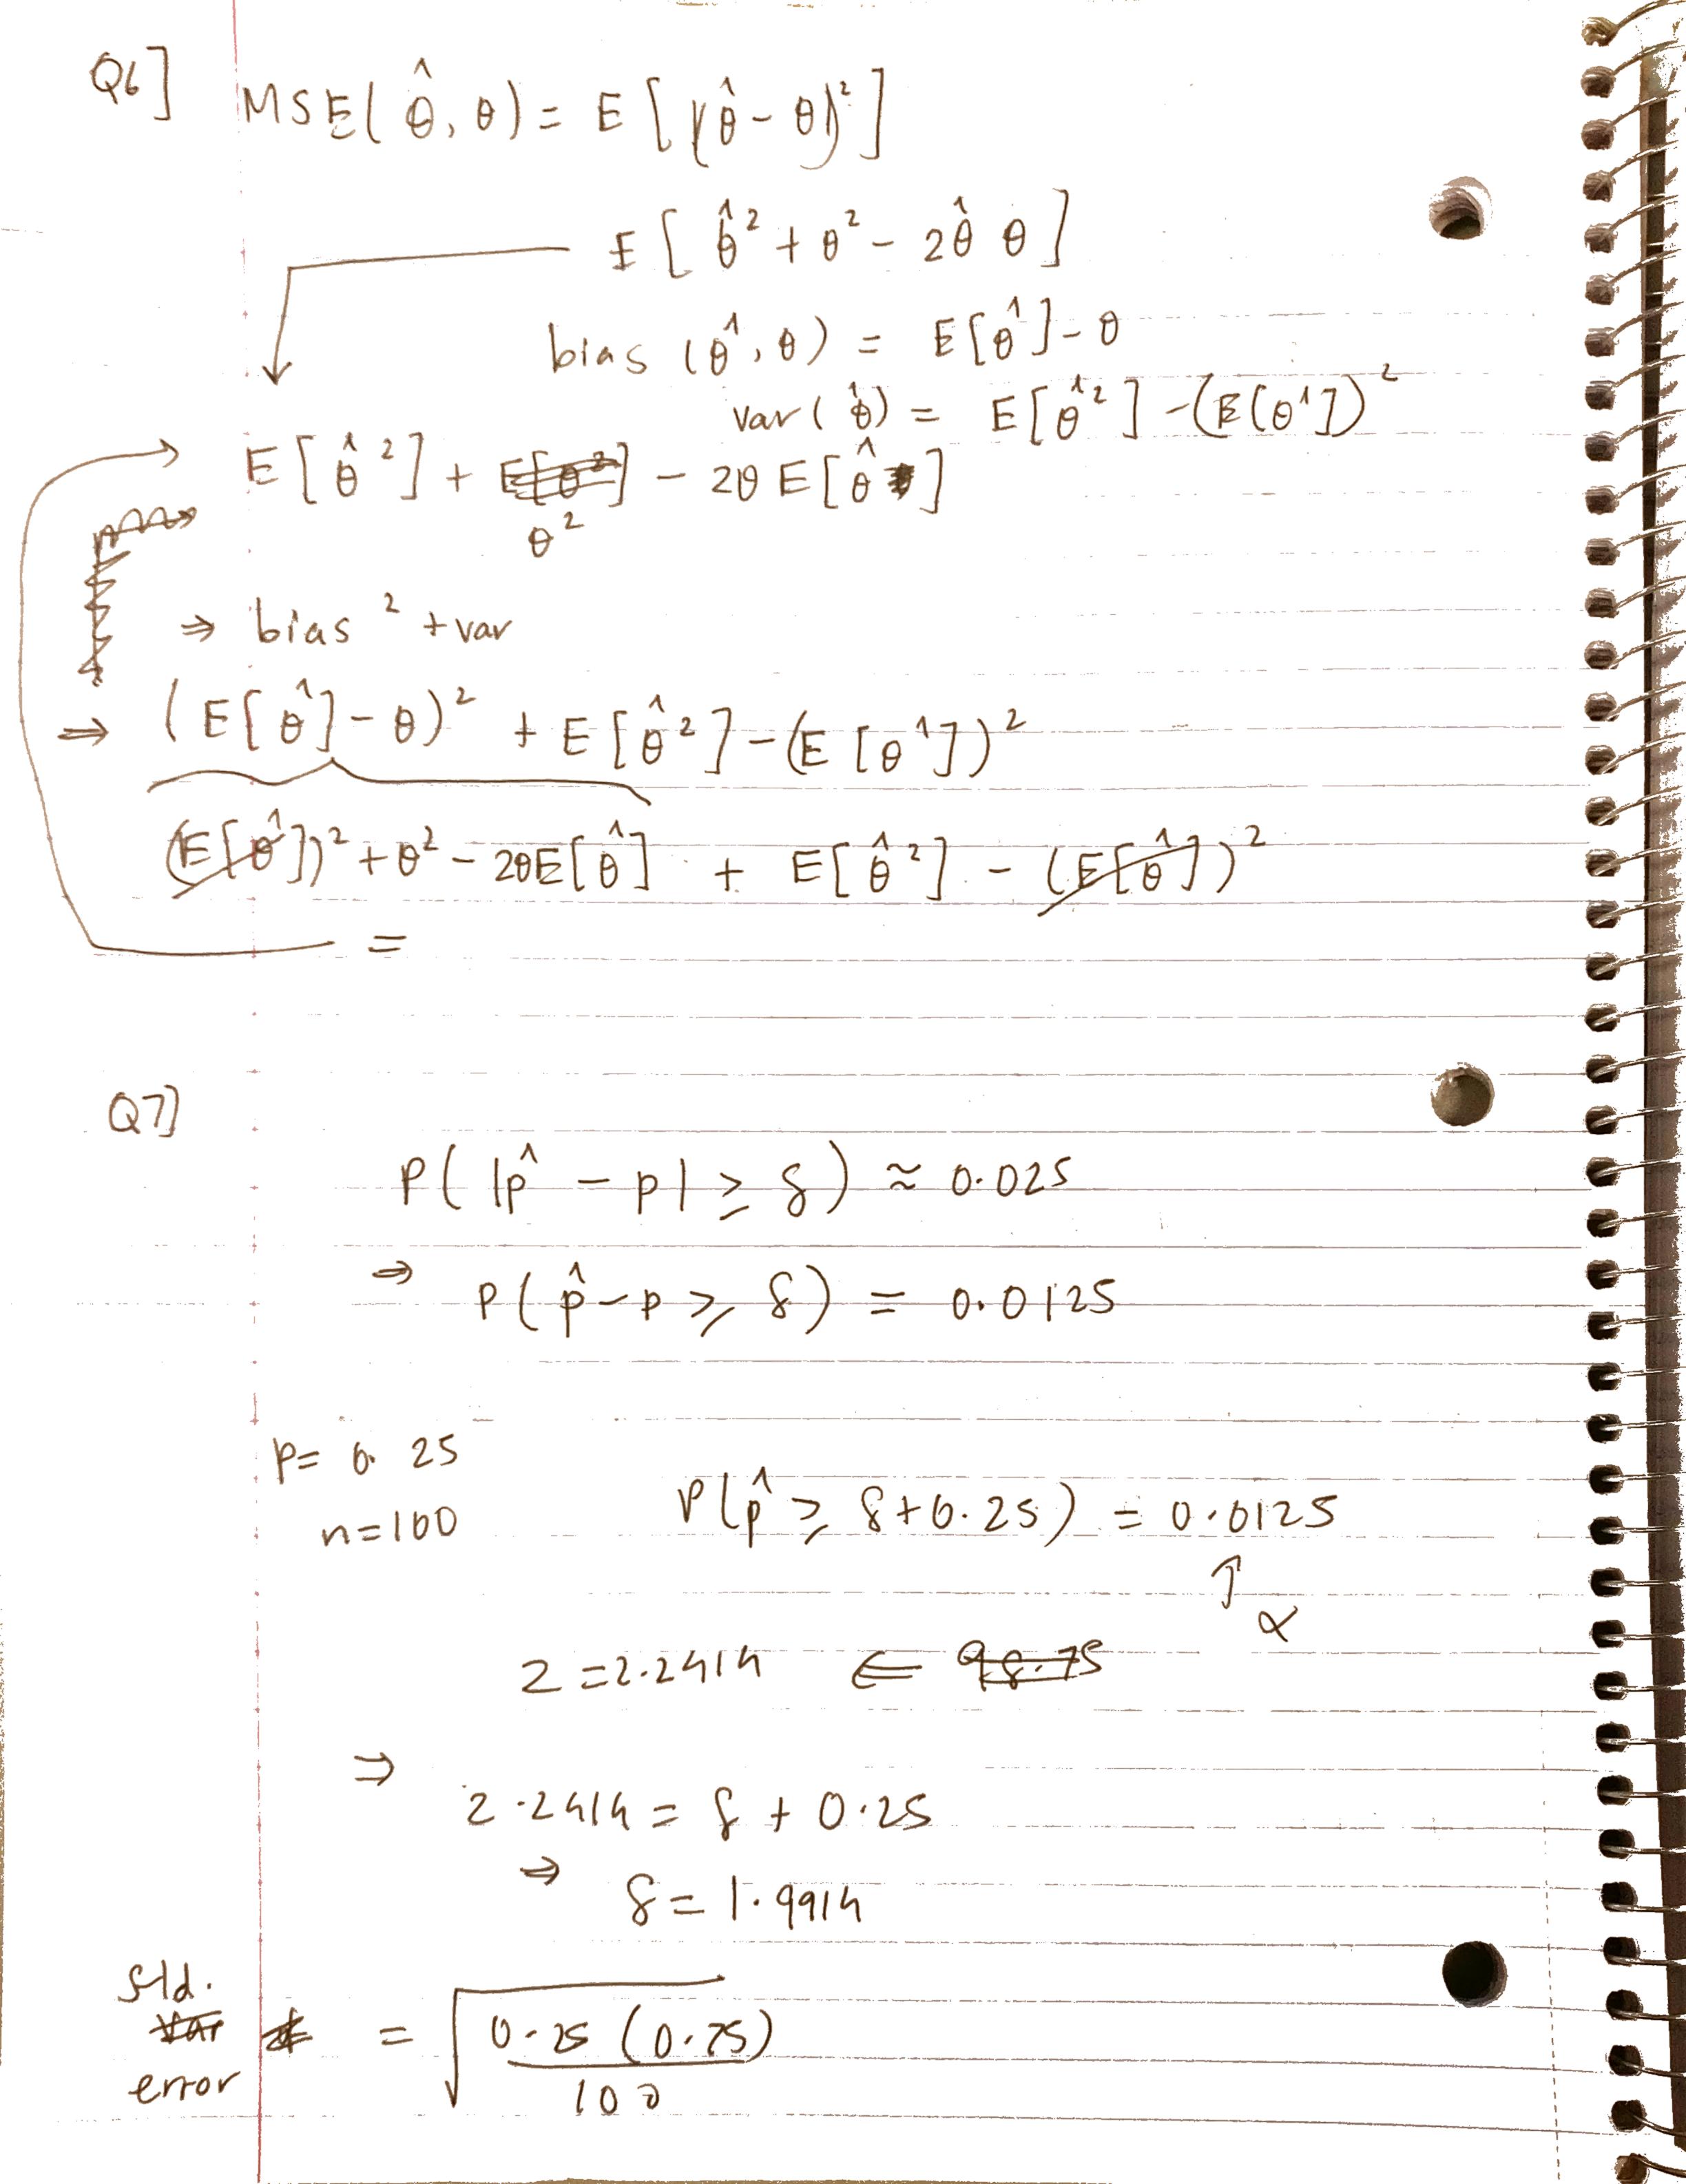 Q6] MSE(θ̂, θ) = E[(θ̂ - θ)²]
E[θ̂² + θ² - 2θ̂ θ]
bias (θ̂, θ) = E[θ̂] - θ
var(θ̂) = E[θ̂²] - (E[θ̂])²
E[θ̂²] + E[θ²] - 2θ E[θ̂]
θ²
⇒ bias² + var
⇒ (E[θ̂] - θ)² + E[θ̂²] - (E[θ̂])²
(E[θ̂])² + θ² - 2θE[θ̂] + E[θ̂²] - (E[θ̂])²
=
Q7]
P( |p̂ - p| ≥ δ) ≈ 0.025
⇒ P(p̂ - p ≥ δ) = 0.0125
p = 0.25
n=100 P(p̂ ≥ δ+0.25) = 0.0125
↑ α
z = 2.2414 ⇐ 98.75
⇒
2.2414 = δ + 0.25
⇒ δ = 1.9914
Std.
var
error = √(0.25 (0.75) / 100)